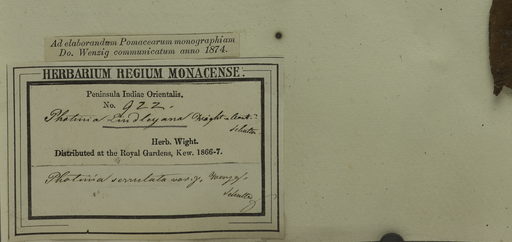 Ad elaborandum Pomacearum monographiam
Do. Wenzig communicatum anno 1874.
HERBARIUM REGIUM MONACENSE.
Peninsula Indiae Orientalis,
No. 922.
Photinia Lindleyana Wight & Arnt.
Herb. Wight.
Distributed at the Royal Gardens, Kew. 1866-7.
Photinia serrulata var. γ. Wenzg.